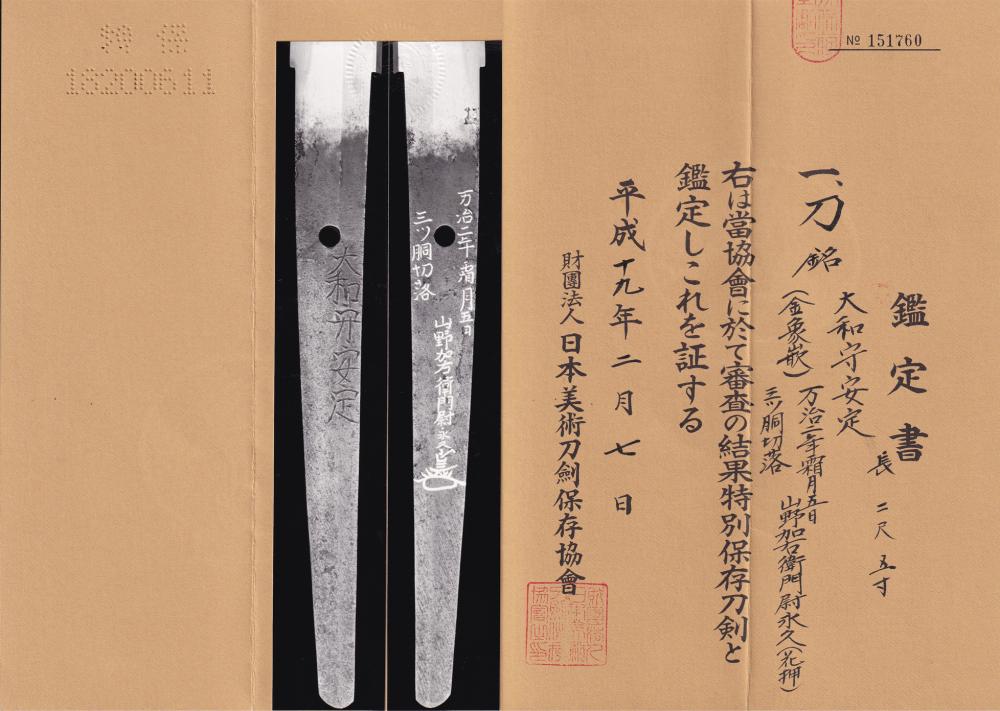 № 151760
鑑定書
一、刀 銘 大和守安定 長 二尺五寸
(金象嵌) 万治二年霜月五日 山野加右衛門尉永久(花押)
三ツ胴切落
右は當協會に於て審査の結果特別保存刀剣と
鑑定しこれを証する
平成十九年二月七日
財團法人 日本美術刀劍保存協會
万治二年霜月五日
三ツ胴切落
山野加右衛門尉永久
大和守安定
特 保
18200611